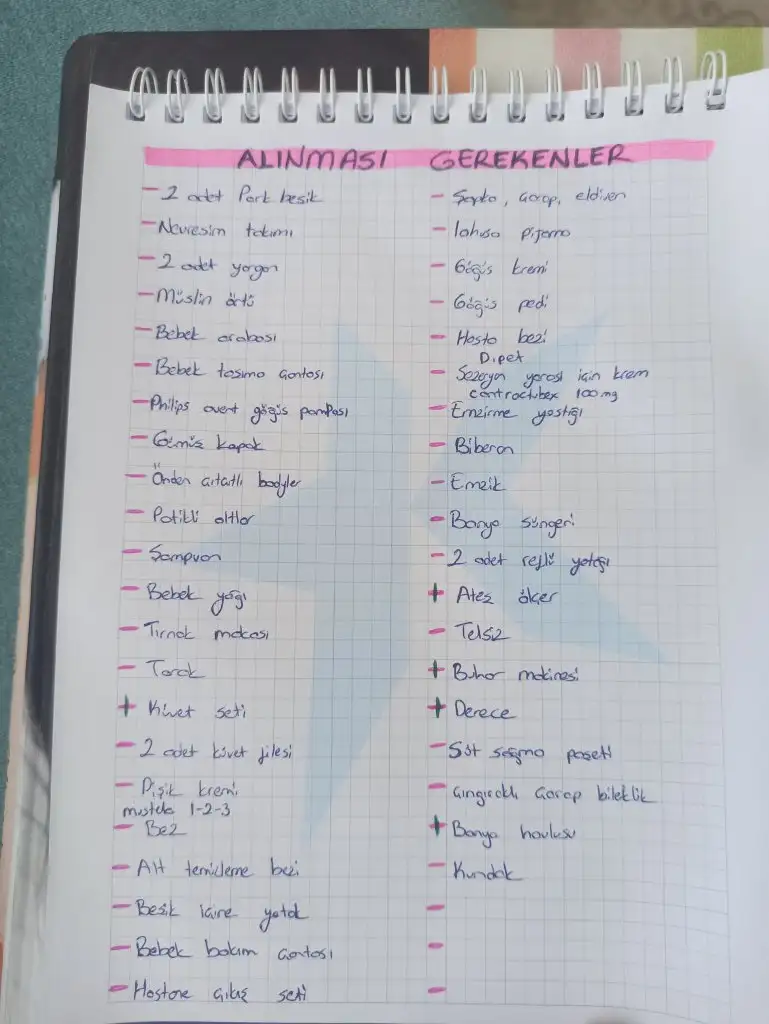 ALINMASI GEREKENLER
- 2 adet Park beşik
- Nevresim takımı
- 2 adet yorgan
- Müslin örtü
- Bebek arabası
- Bebek taşıma çantası
- Philips avent göğüs pompası
- Gümüş kapak
- Önden çıtçıtlı bodyler
- Patikli altlar
- Şampuan
- Bebek yağı
- Tırnak makası
- Tarak
+ Küvet seti
- 2 adet küvet filesi
- Pişik kremi
mustela 1-2-3
- Bez
- Alt temizleme bezi
- Beşik içine yatak
- Bebek bakım çantası
- Hastane çıkış seti
- Şapka, çorap, eldiven
- lohusa pijama
- Göğüs kremi
- Göğüs pedi
- Hasta bezi
Dipet
- Sezeryan yarası için krem
contractubex 100 mg
- Emzirme yastığı
- Biberon
- Emzik
- Banyo süngeri
- 2 adet reflü yatağı
+ Ateş ölçer
- Telsiz
+ Buhar makinesi
+ Derece
- Süt sağma poşeti
- çıngıraklı çorap bileklik
+ Banyo havlusu
- Kundak
-
-
-